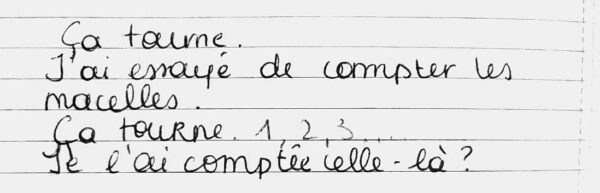 Ça tourne.
J'ai essayé de compter les
nacelles.
Ça touRne. 1, 2, 3...
Je l'ai comptée celle-là ?